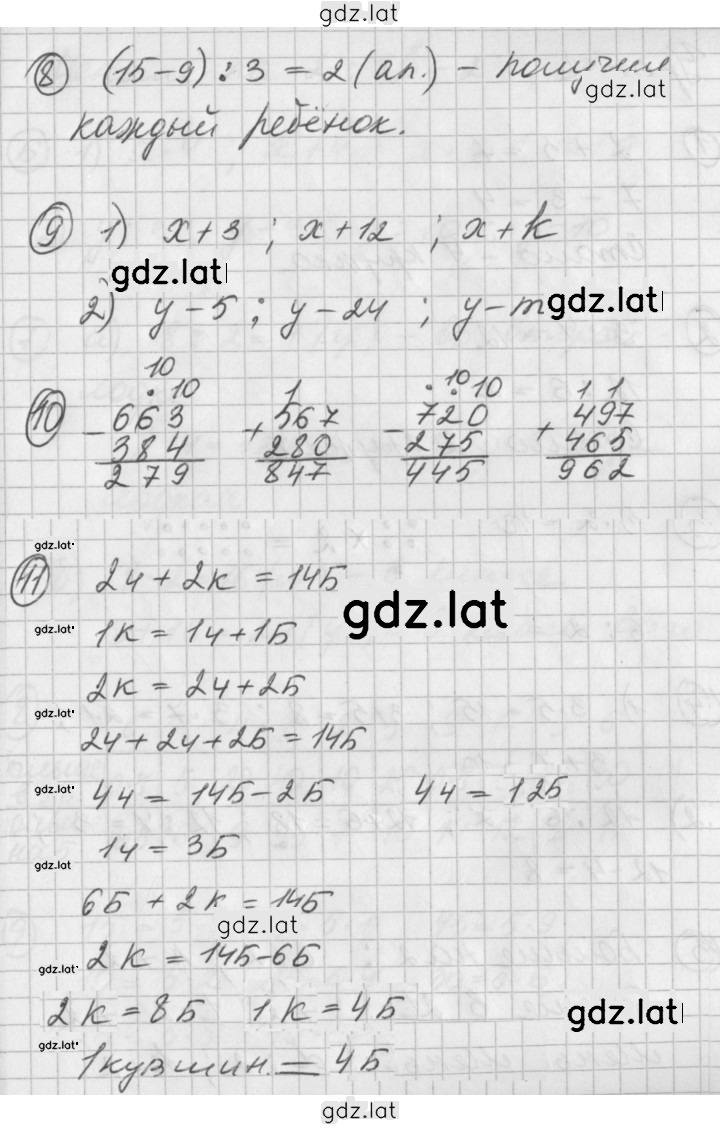 gdz.lat
⑧ (15-9) : 3 = 2 (ап.) - получил
gdz.lat
каждый ребёнок.
⑨ 1) x+3 ; x+12 ; x+k
gdz.lat
2) y-5 ; y-24 ; y-m
gdz.lat
10
. 10 1 . 10 . 10 1 1
⑩ - 663 + 567 - 720 + 497
384 280 275 465
279 847 445 962
gdz.lat
⑪ 2ч + 2к = 14Б
gdz.lat
gdz.lat
1к = 1ч+1Б
2к = 2ч+2Б
gdz.lat
2ч+2ч+2Б=14Б
gdz.lat
4ч = 14Б-2Б 4ч = 12Б
1ч = 3Б
gdz.lat
6Б + 2к = 14Б
gdz.lat
gdz.lat
2к = 14Б-6Б
2к=8Б 1к=4Б
gdz.lat
gdz.lat
1кувшин. = 4Б
gdz.lat